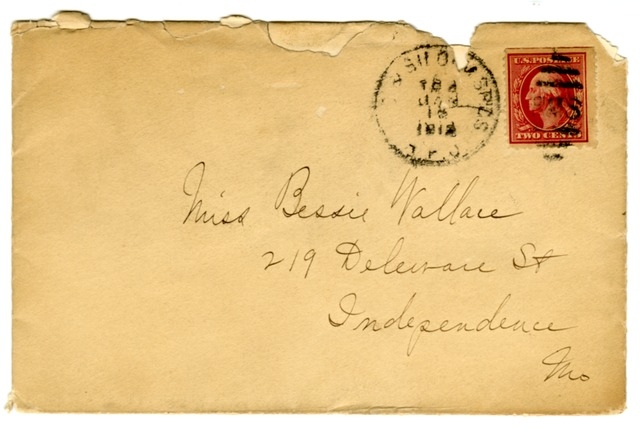 1912
R.P.O.
U.S. POSTAGE
TWO CENTS
Miss Bessie Wallace
219 Deleware St
Independence
Mo